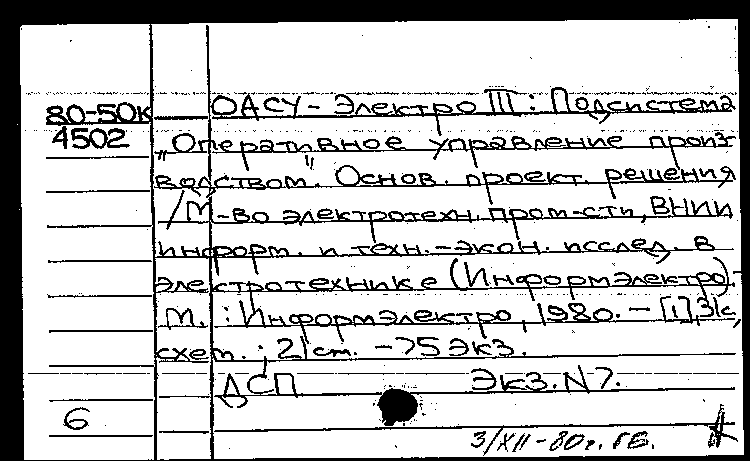 80-50к ОАСУ - Электро III : Подсистема
4502 „Оперативное управление произ-
водством". Основ. проект. решения
/М-во электротехн. пром-сти, ВНИИ
информ. и техн.-экон. исслед. в
электротехнике (Информэлектро).-
М. : Информэлектро, 1980. - [1], 31с,
схем. ; 21 см. - 75 экз.
ДСП Экз. N 7.
6
3/XII - 80г. ГБ.